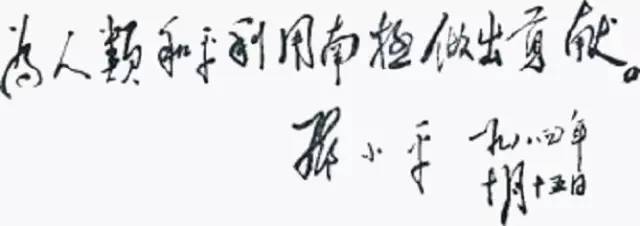 为人類和平利用南極做出贡献。
邓小平 一九八四年
十月十五日